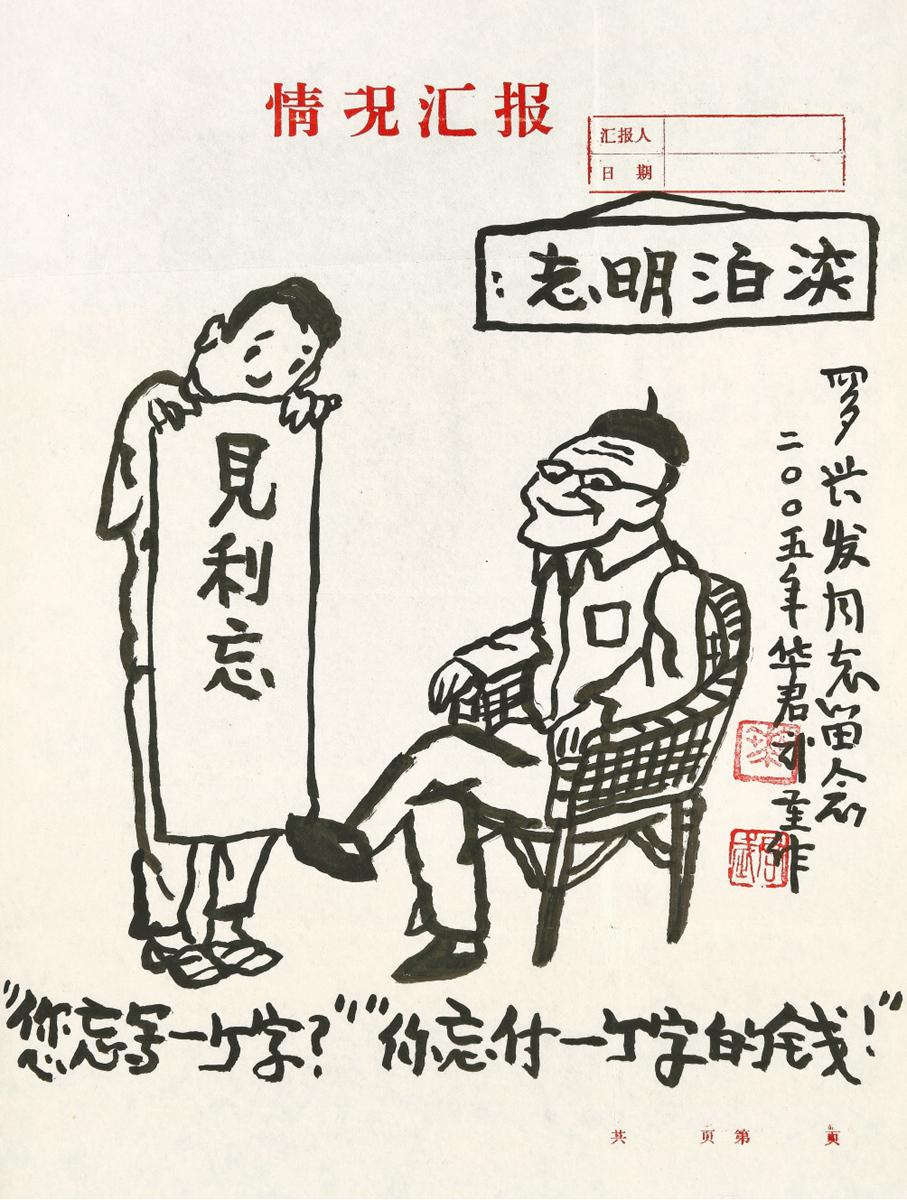 情况汇报
汇报人
日期
淡泊明志:
見利忘
罗兴发同志留念
二〇〇五年华君武重作
"您忘写一个字?" "你忘付一个字的钱!"
共 页 第 页